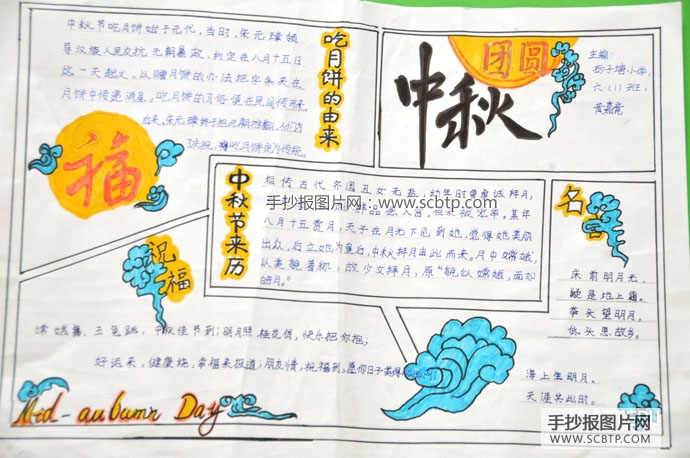 中秋节吃月饼始于元代，当时，朱元璋领
导汉族人民反抗元朝暴政，约定在八月十五日
这一天起义，以赠月饼的办法把字条夹在
月饼中传递消息。吃月饼的习俗便在民间传开来
后来，朱元璋终于把元朝推翻，
吃月饼的由来
福
团圆
中秋
主编：
砂子塘小学
六（1）班
中秋节来历
相传古代齐国丑女无盐，幼年时曾虔诚拜月，
手抄报图片网：www.scbtp.com
入宫，但未被宠幸。某年
八月十五赏月，天子在月光下见到她，觉得她美丽
出众，后立她为皇后，中秋拜月由此而来。月中嫦娥，
以美貌著称，故少女拜月，愿“貌似嫦娥，面如
皓月。”
名言
床前明月光，
疑是地上霜。
举头望明月，
低头思故乡。
海上生明月，
天涯共此时。
祝福
嫦娥舞，玉兔跳，中秋佳节到；明月照，桂花俏，快乐把你抱；
好运来，健康绕，幸福来报道；朋友情，祝福到，愿你日子美得
Mid-aubumn Day
手抄报图片网
WWW.SCBTP.COM